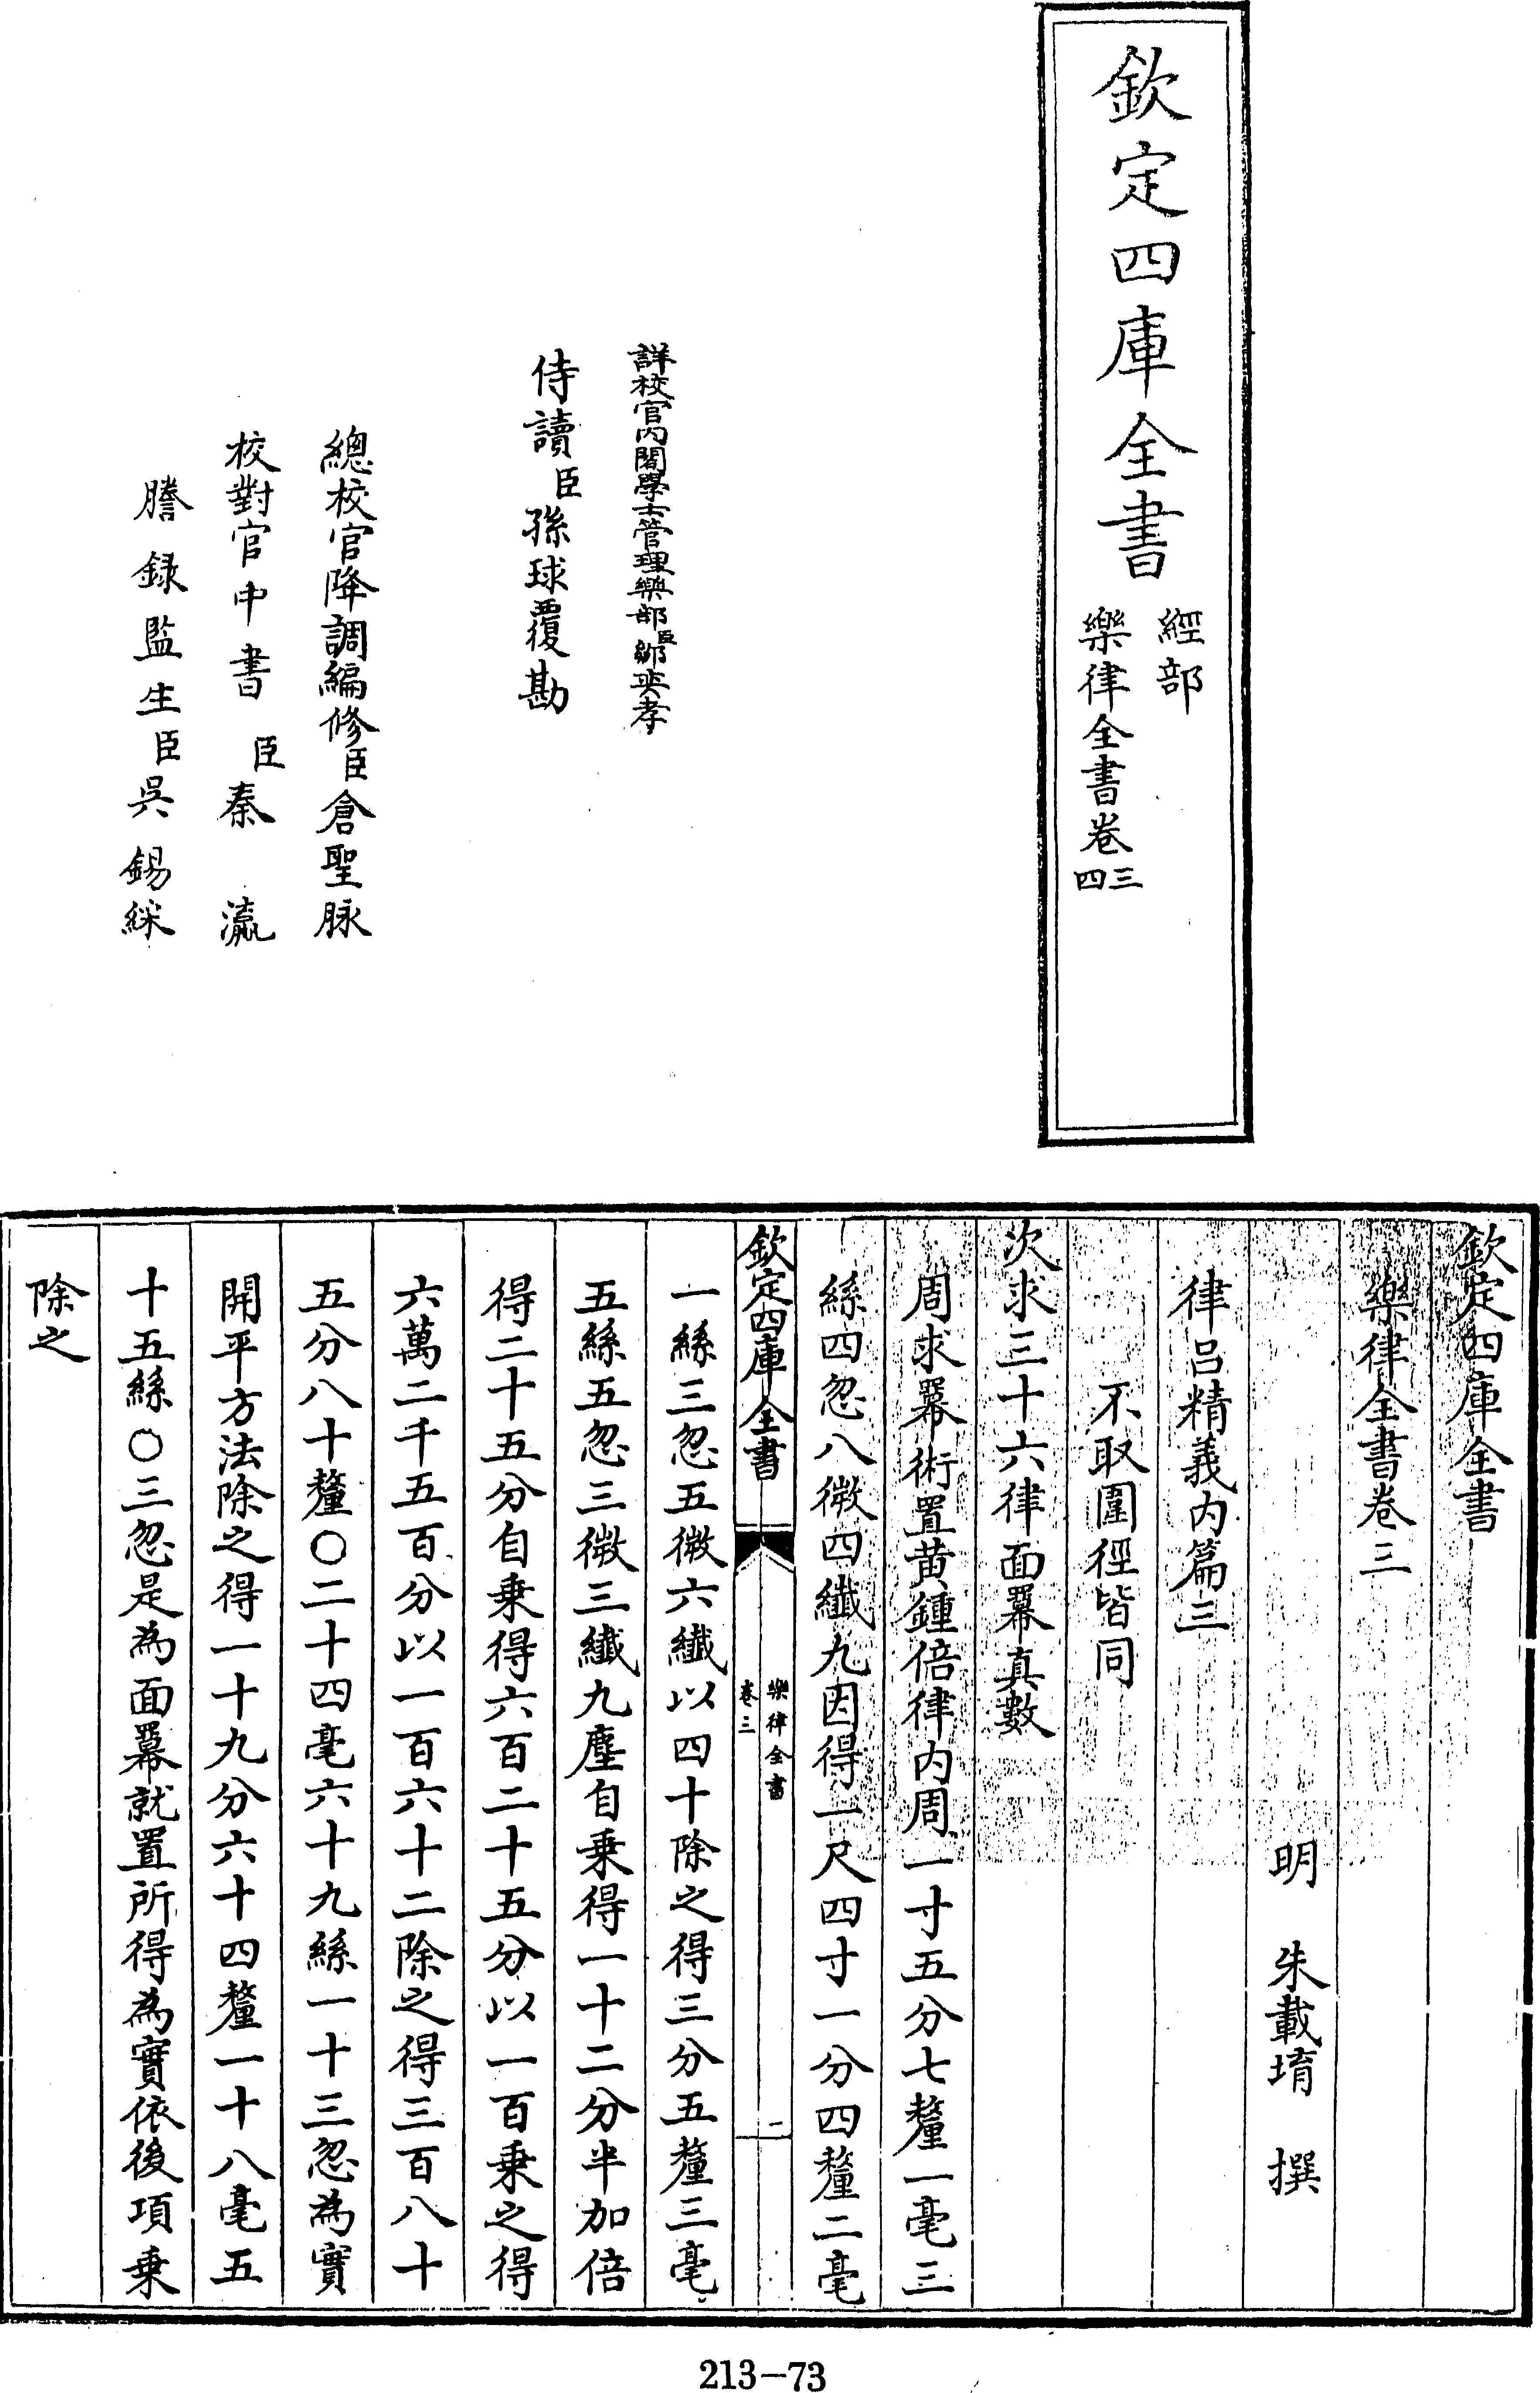 欽定四庫全書
經部
樂律全書卷三
四
詳校官內閣學士管理樂部臣鄒奕孝
侍讀臣孫球覆勘
總校官降調編修臣倉聖脉
校對官中書臣秦瀛
謄録監生臣吳錫綵
欽定四庫全書
樂律全書卷三
明 朱載堉 撰
律吕精義内篇三
不取圍徑皆同
次求三十六律面羃真數
周求羃術置黄鍾倍律内周一寸五分七釐一毫三
絲四忽八微四纖九因得一尺四寸一分四釐二毫
欽定四庫全書
樂律全書
卷三
一
一絲三忽五微六纖以四十除之得三分五釐三毫
五絲五忽三微三纖九塵自乗得一十二分半加倍
得二十五分自乗得六百二十五分以一百乗之得
六萬二千五百分以一百六十二除之得三百八十
五分八十釐〇二十四毫六十九絲一十三忽為實
開平方法除之得一十九分六十四釐一十八毫五
十五絲〇三忽是為面羃就置所得為實依後項乗
除之
213-73